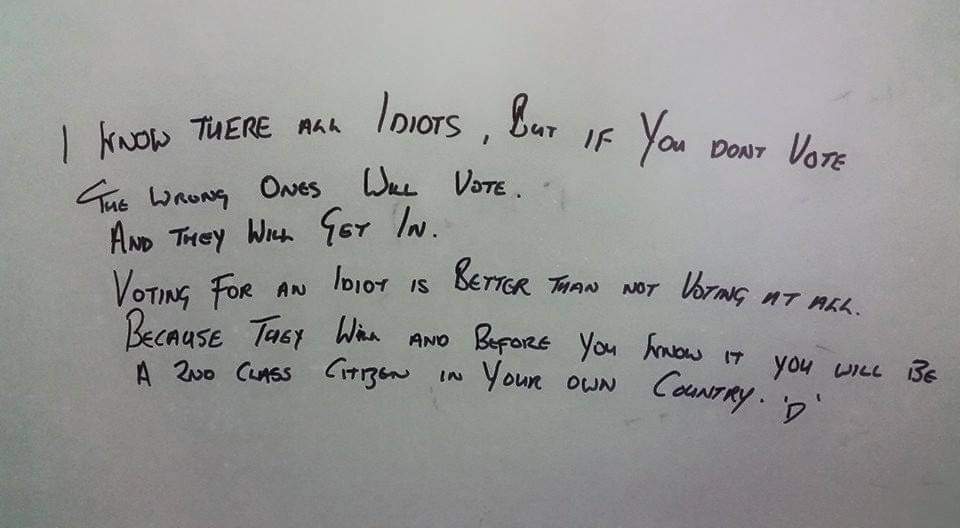 I KNOW THERE ALL IDIOTS, BUT IF YOU DONT VOTE
THE WRONG ONES WILL VOTE.
AND THEY WILL GET IN.
VOTING FOR AN IDIOT IS BETTER THAN NOT VOTING AT ALL.
BECAUSE THEY WILL AND BEFORE YOU KNOW IT YOU WILL BE
A 2ND CLASS CITIZEN IN YOUR OWN COUNTRY. 'D'